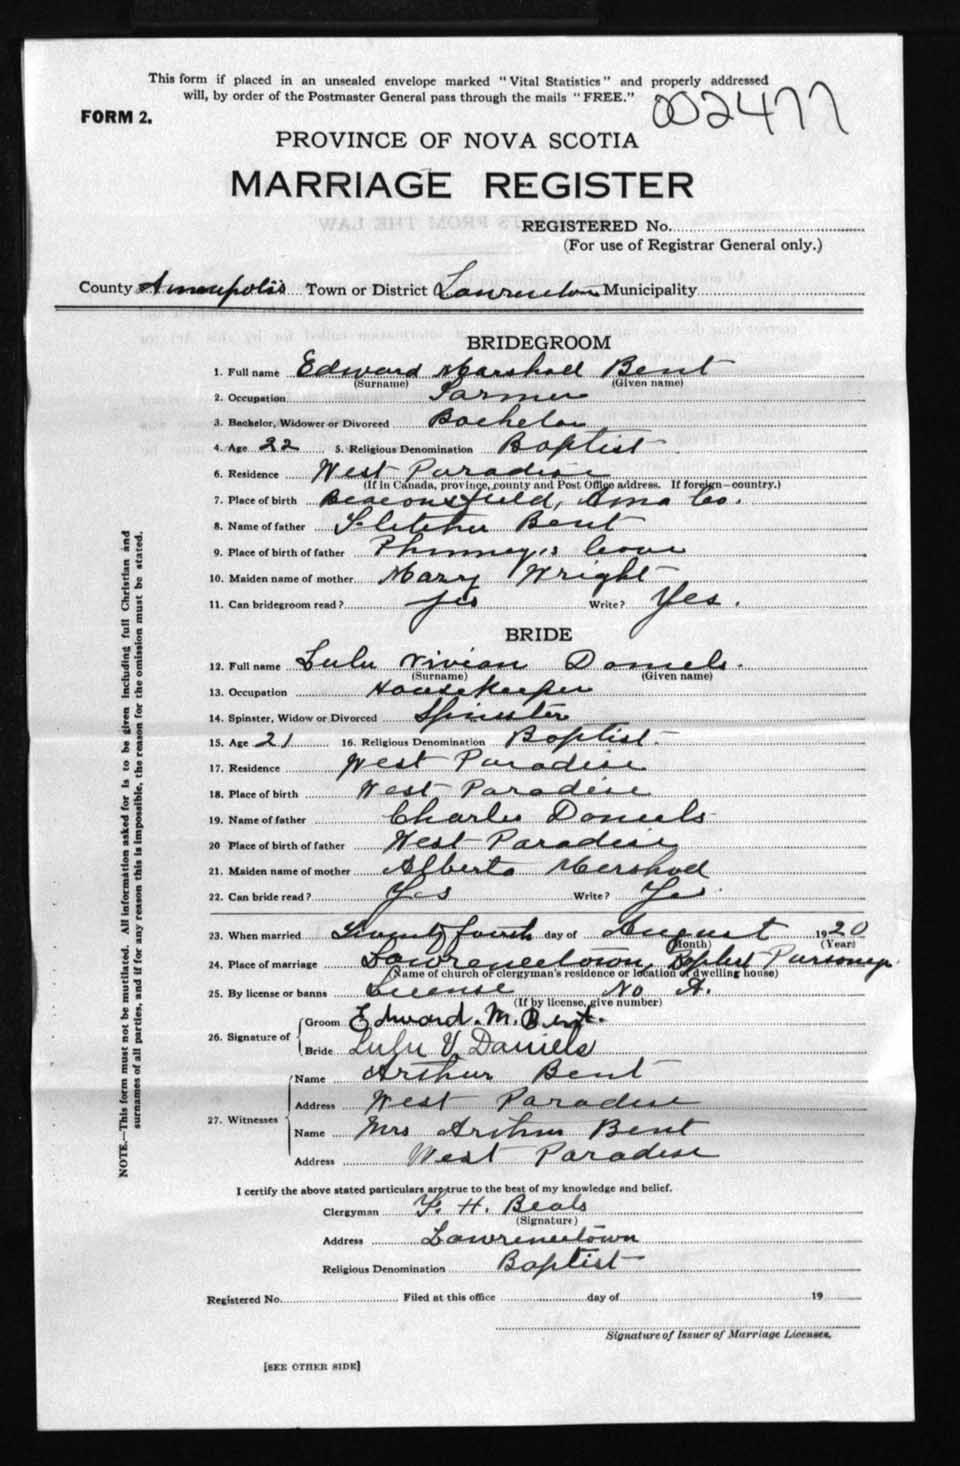 This form if placed in an unsealed envelope marked "Vital Statistics" and properly addressed
will, by order of the Postmaster General pass through the mails "FREE."
002477
FORM 2.
PROVINCE OF NOVA SCOTIA
MARRIAGE REGISTER
REGISTERED No.
(For use of Registrar General only.)
County Annapolis Town or District Lawrencetown Municipality
BRIDEGROOM
1. Full name Edward Marshall Bent
(Surname) (Given name)
2. Occupation Farmer
3. Bachelor, Widower or Divorced Bachelor
4. Age 22 5. Religious Denomination Baptist
6. Residence West Paradise
(If in Canada, province, county and Post Office address. If foreign—country.)
7. Place of birth Beaconsfield, Anna Co.
8. Name of father Fletcher Bent
9. Place of birth of father Phinney's Cove
10. Maiden name of mother Mary Wright
11. Can bridegroom read? Yes Write? Yes.
BRIDE
12. Full name Lulu Vivian Daniels.
(Surname) (Given name)
13. Occupation Housekeeper
14. Spinster, Widow or Divorced Spinster
15. Age 21 16. Religious Denomination Baptist.
17. Residence West Paradise
18. Place of birth West Paradise
19. Name of father Charles Daniels
20 Place of birth of father West Paradise
21. Maiden name of mother Alberta
22. Can bride read? Yes Write? Yes
23. When married Twenty fourth day of August 1920
(Month) (Year)
24. Place of marriage Lawrencetown, Baptist Parsonage
(Name of church or clergyman's residence or location of dwelling house)
25. By license or banns License No A.
(If by license, give number)
26. Signature of Groom Edward. M. Bent.
Bride Lulu V Daniels
27. Witnesses Name Arthur Bent
Address West Paradise
Name Mrs Arthur Bent
Address West Paradise
I certify the above stated particulars are true to the best of my knowledge and belief.
Clergyman F. H. Beals
(Signature)
Address Lawrencetown
Religious Denomination Baptist
Registered No. Filed at this office day of 19
Signature of Issuer of Marriage Licenses.
[SEE OTHER SIDE]
NOTE.—This form must not be mutilated. All information asked for is to be given including full Christian and
surnames of all parties, and if for any reason this is impossible, the reason for the omission must be stated.